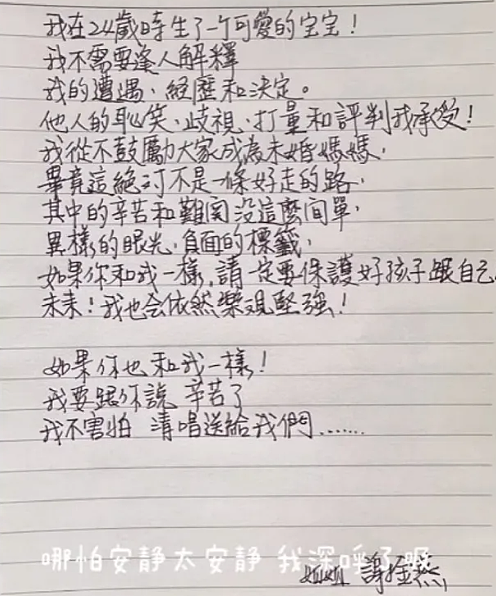 我在24歲時生了一个可愛的宝宝！
我不需要逢人解釋
我的遭遇、経歷和決定。
他人的恥笑、歧視、打量和評判我承受！
我從不鼓勵大家成為未婚媽媽，
畢竟這絕对不是一條好走的路，
其中的辛苦和難関没這麼间單，
異樣的眼光，負面的標籤，
如果你和我一樣，請一定要保護好孩子跟自己，
未来！我也会依然樂观堅強！
如果你也和我一樣！
我要跟你說 辛苦了
我不害怕 清唱送給我們……
哪怕安静太安静 我深呼了吸
姐姐 謝金燕